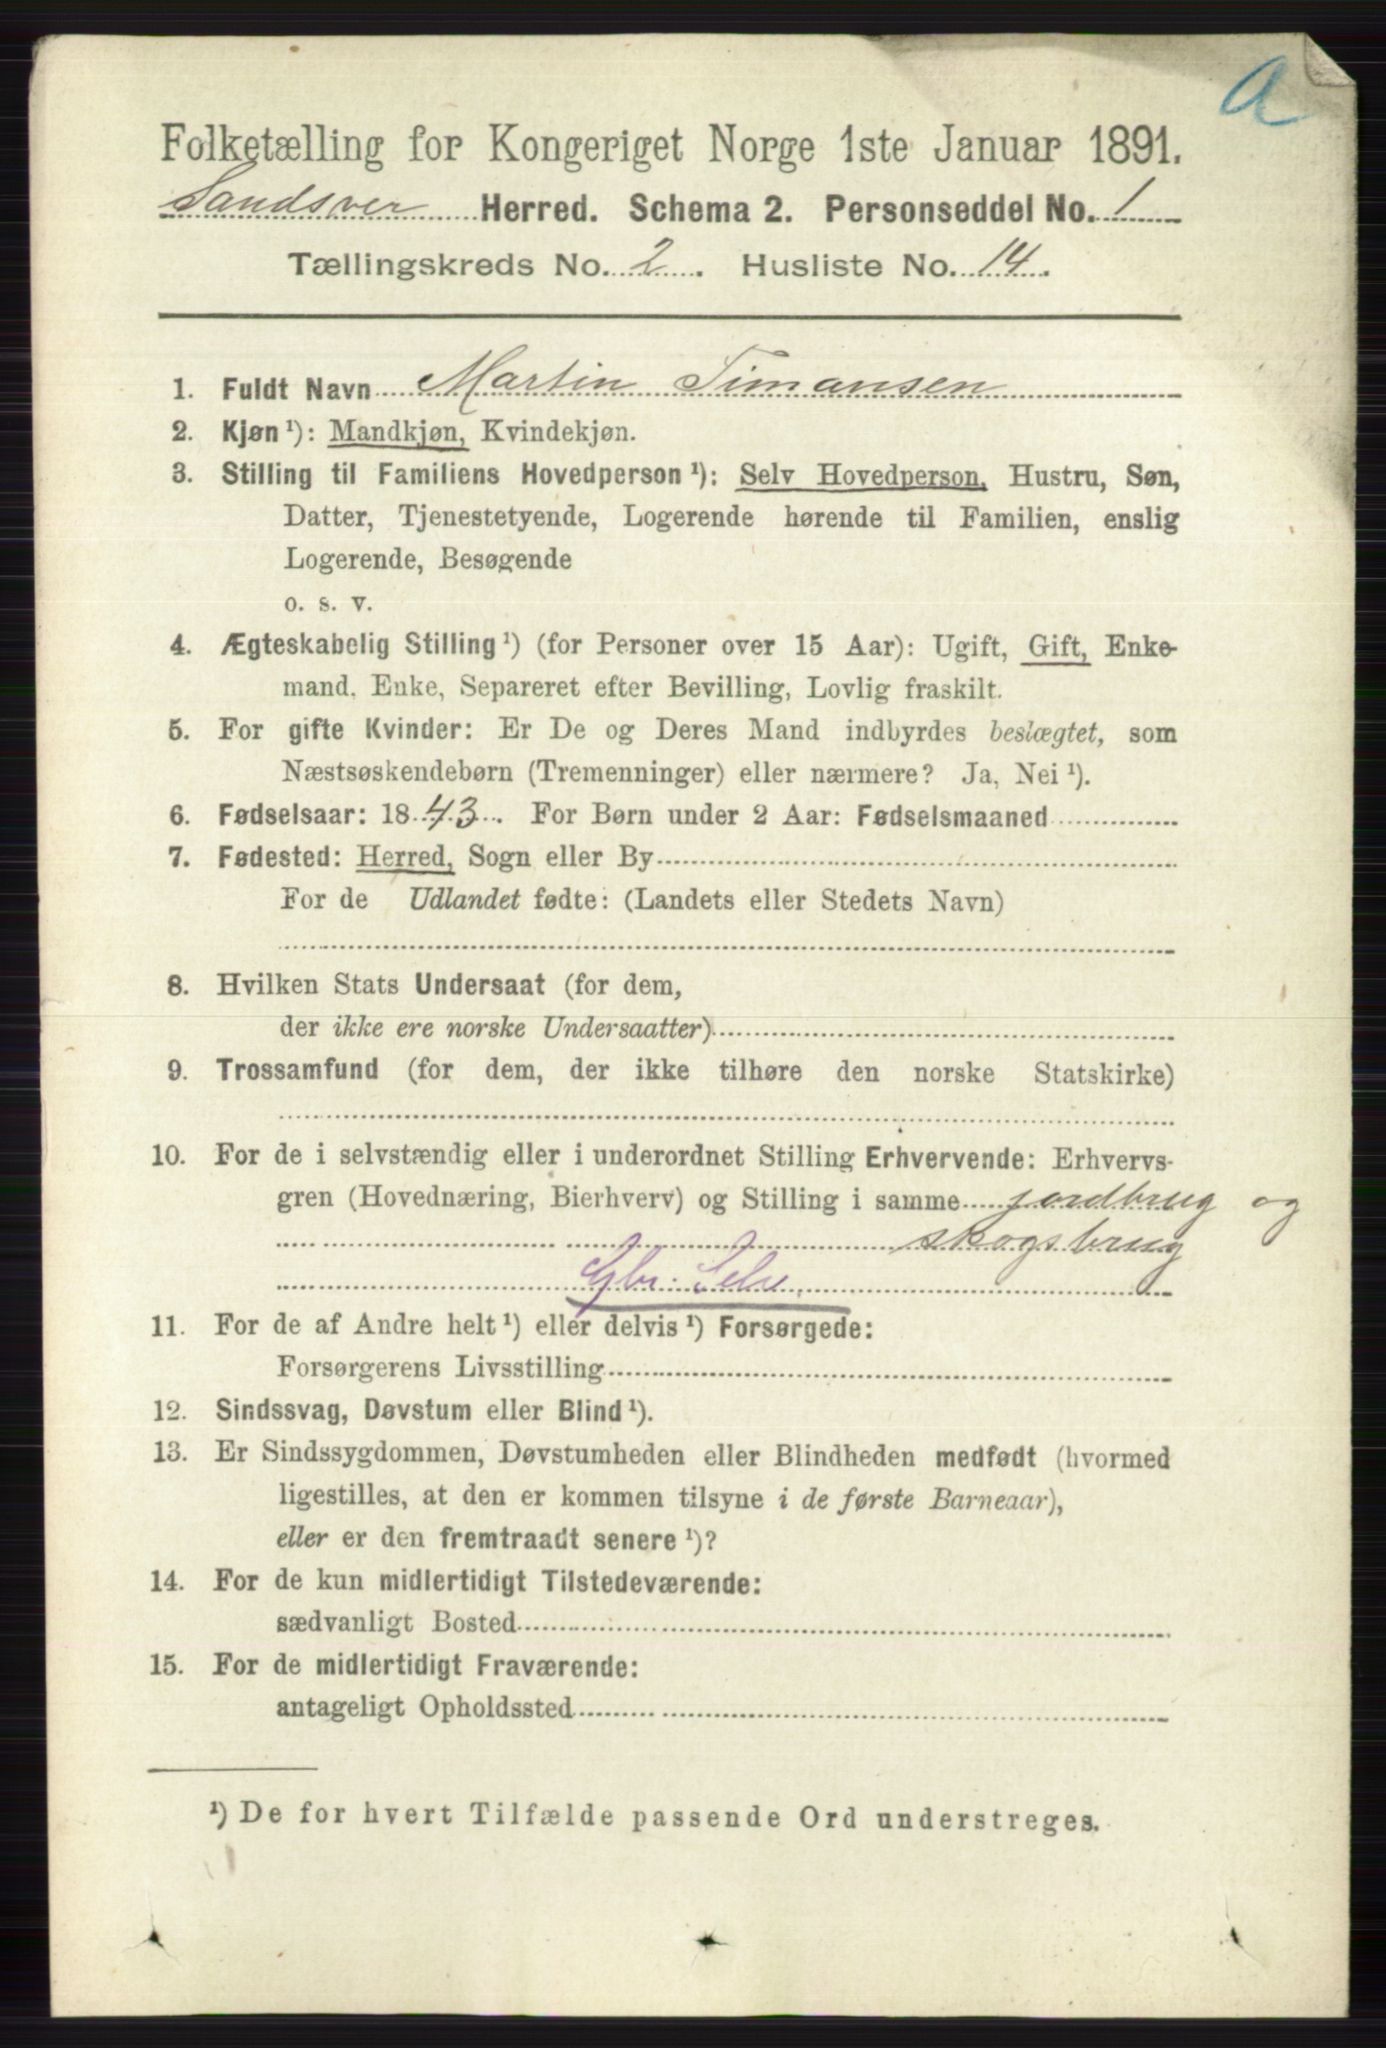 a
Folketælling for Kongeriget Norge 1ste Januar 1891.
Sandsver Herred. Schema 2. Personseddel No. 1
Tællingskreds No. 2. Husliste No. 14.
1. Fuldt Navn Martin Simansen
2. Kjøn ¹): Mandkjøn, Kvindekjøn.
3. Stilling til Familiens Hovedperson ¹): Selv Hovedperson, Hustru, Søn,
Datter, Tjenestetyende, Logerende hørende til Familien, enslig
Logerende, Besøgende
o. s. v.
4. Ægteskabelig Stilling ¹) (for Personer over 15 Aar): Ugift, Gift, Enke-
mand, Enke, Separeret efter Bevilling, Lovlig fraskilt.
5. For gifte Kvinder: Er De og Deres Mand indbyrdes beslægtet, som
Næstsøskendebørn (Tremenninger) eller nærmere? Ja, Nei ¹).
6. Fødselsaar: 1843. For Børn under 2 Aar: Fødselsmaaned
7. Fødested: Herred, Sogn eller By
For de Udlandet fødte: (Landets eller Stedets Navn)
8. Hvilken Stats Undersaat (for dem,
der ikke ere norske Undersaatter)
9. Trossamfund (for dem, der ikke tilhøre den norske Statskirke)
10. For de i selvstændig eller i underordnet Stilling Erhvervende: Erhvervs-
gren (Hovednæring, Bierhverv) og Stilling i samme jordbrug og
skogsbrug
Gbr. Selv.
11. For de af Andre helt ¹) eller delvis ¹) Forsørgede:
Forsørgerens Livsstilling
12. Sindssvag, Døvstum eller Blind ¹).
13. Er Sindssygdommen, Døvstumheden eller Blindheden medfødt (hvormed
ligestilles, at den er kommen tilsyne i de første Barneaar),
eller er den fremtraadt senere ¹)?
14. For de kun midlertidigt Tilstedeværende:
sædvanligt Bosted
15. For de midlertidigt Fraværende:
antageligt Opholdssted
¹) De for hvert Tilfælde passende Ord understreges.